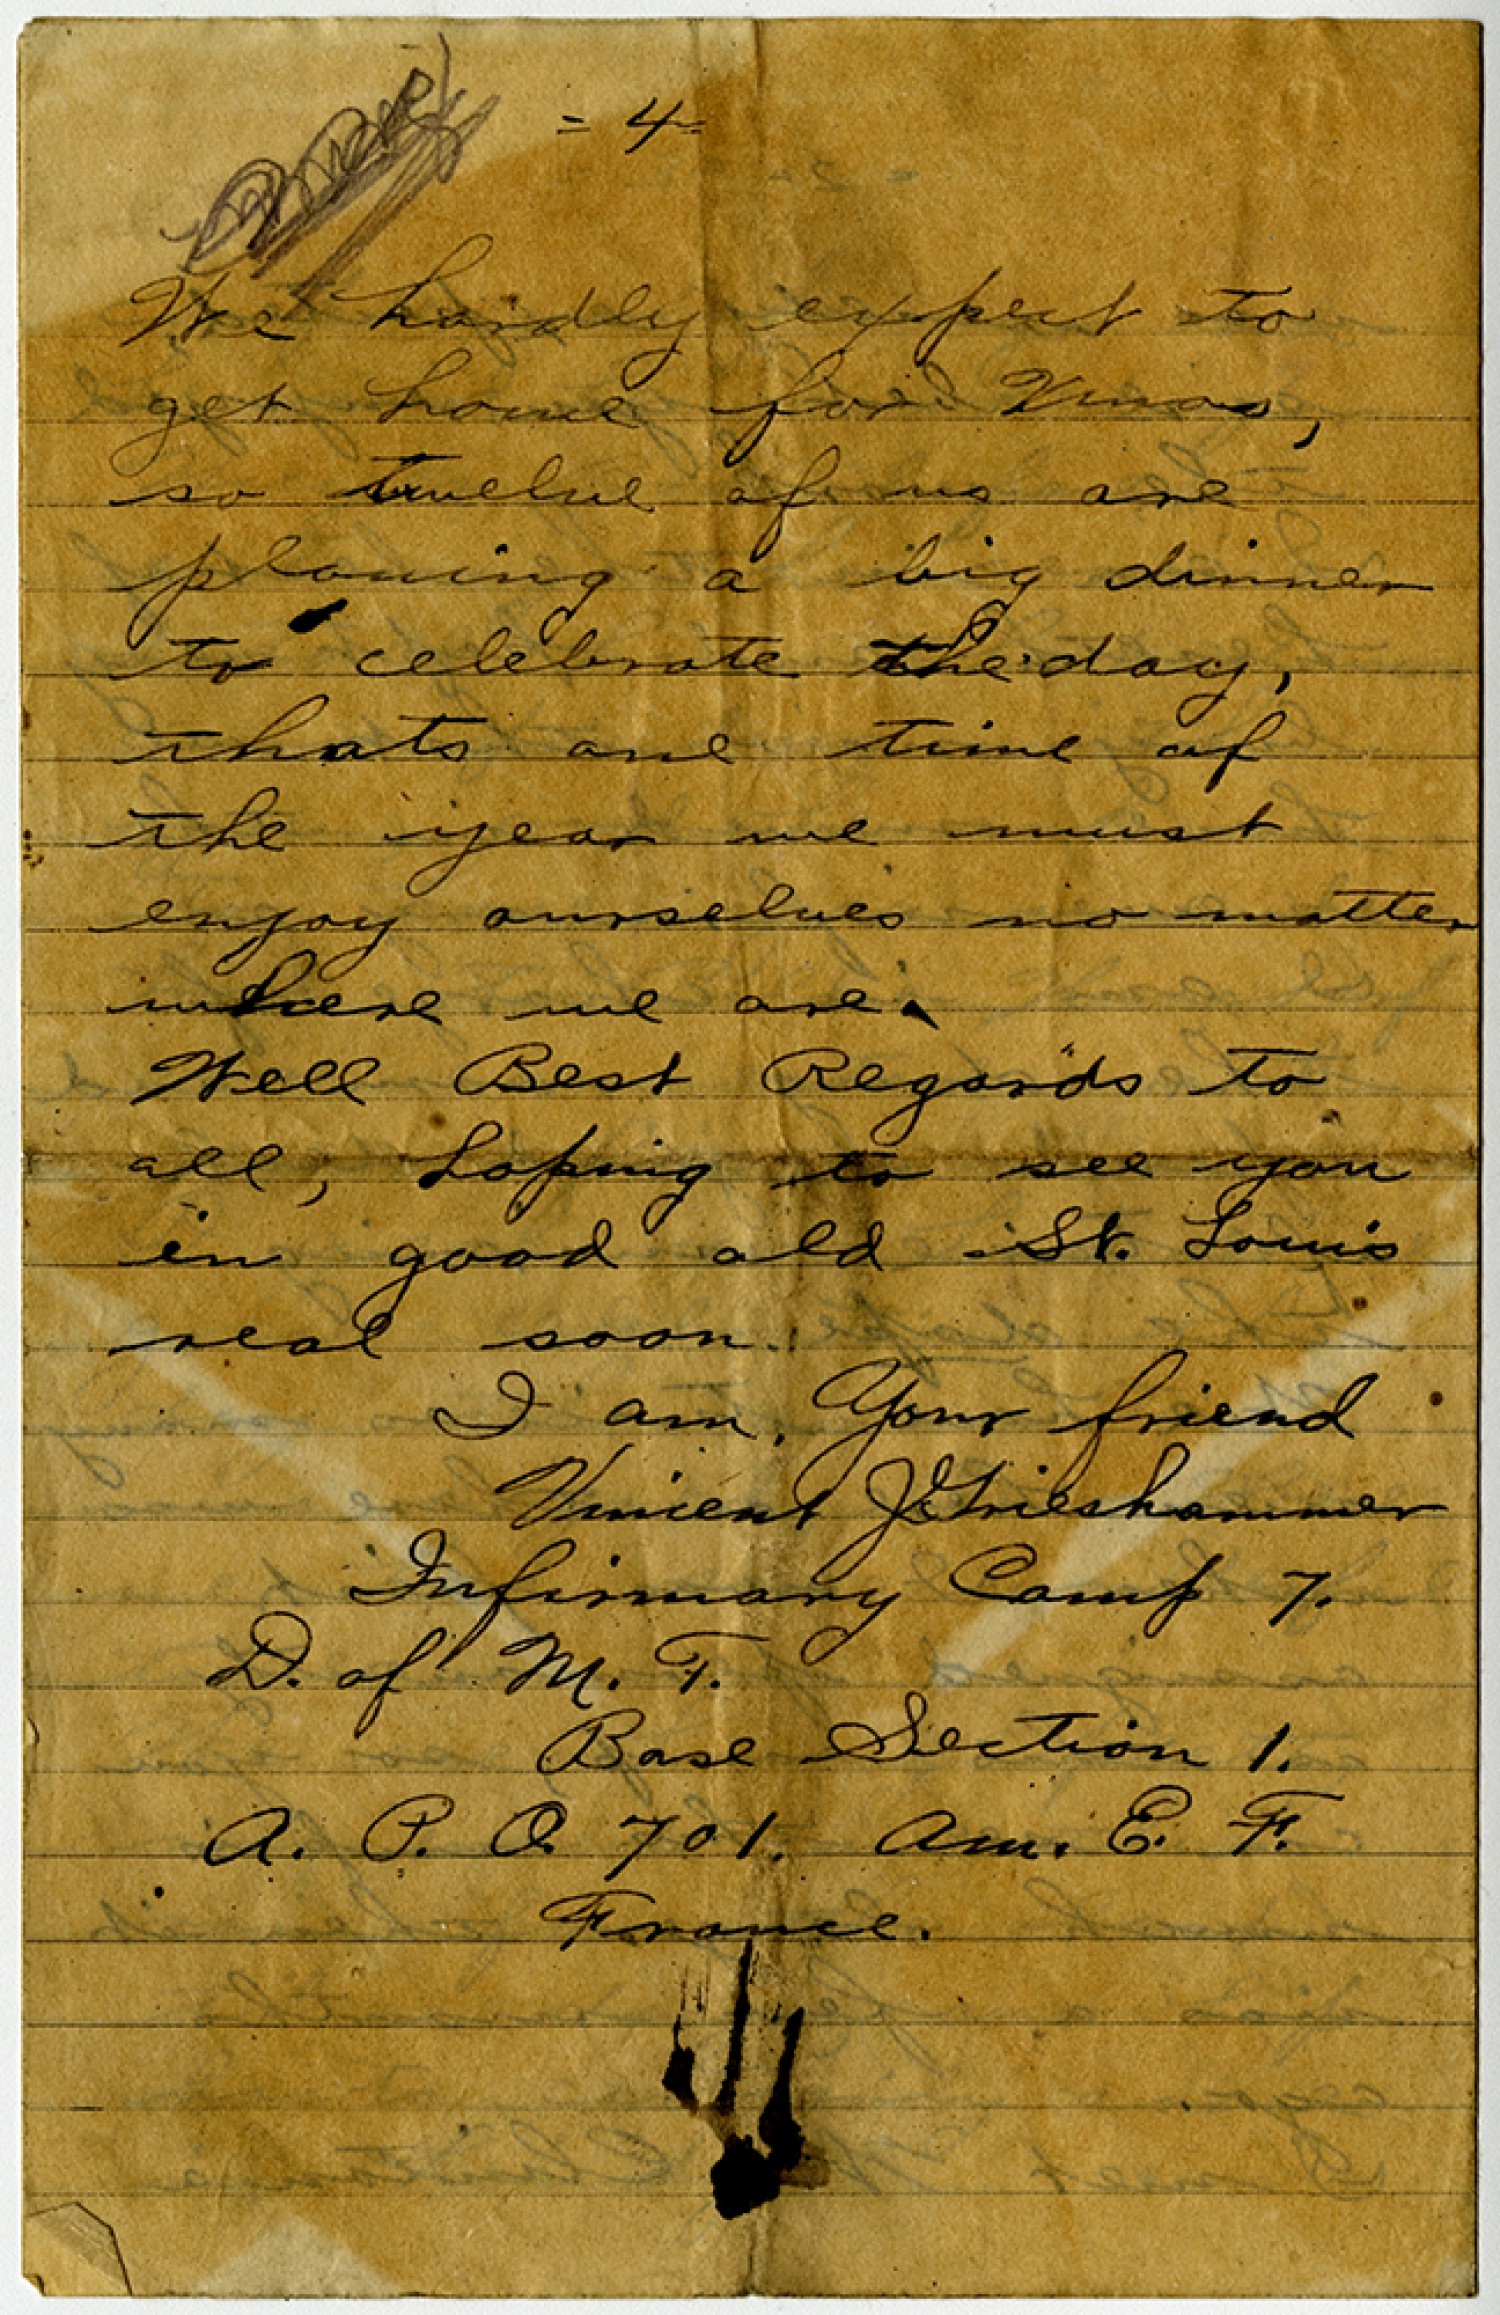 = 4 =
We hardly expect to
get home for Xmas,
so twelve of us are
planing a big dinner
to celebrate the day,
thats one time of
the year we must
enjoy ourselves no matter
where we are.
Well Best Regards to
all, hoping to see you
in good old St. Louis
real soon.
I am, Your friend
Vincent J. Grieshammer
Infirmary Camp 7.
D. of M. T.
Base Section 1.
A. P. O. 701. Am. E. F.
France.